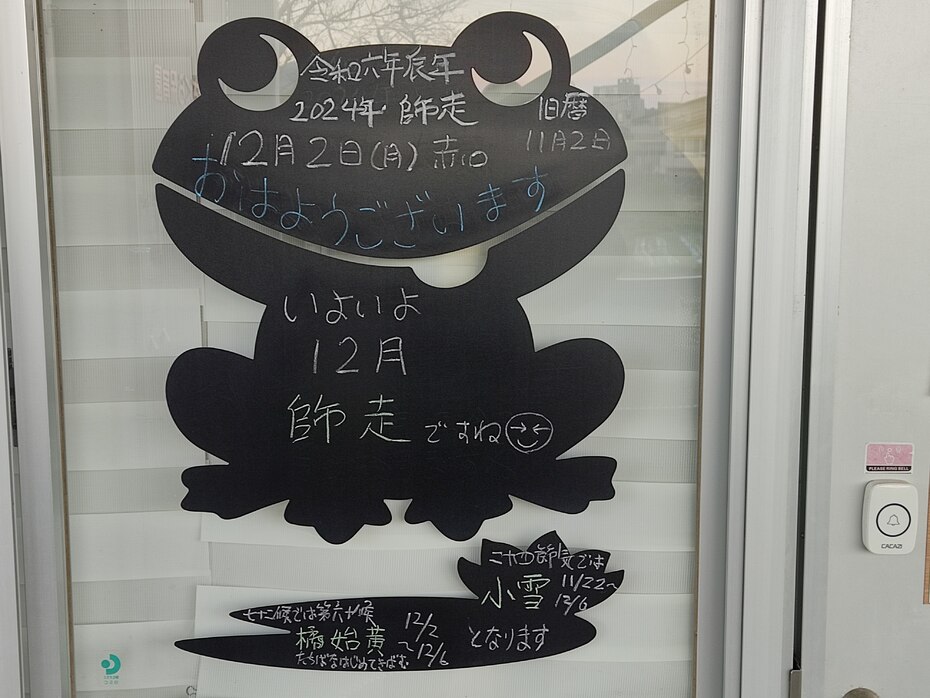 令和六年辰年
2024年・師走
旧暦
11月2日
12月2日(月)赤口
おはようございます
いよいよ
12月
師走ですね
二十四節気では
小雪 11/22～
12/6
七十二候では第六十候
橘始黄 12/2
～12/6
たちばなはじめてきばむ
となります
PLEASE RING BELL
CACAZI